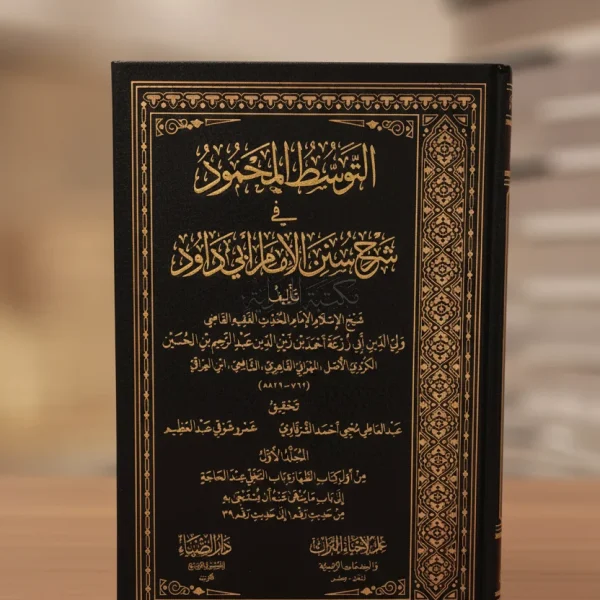 التَّوَسُّطُ المَحْمُودُ
في
شَرْحِ سُنَنِ الإِمَامِ أَبِي دَاوُد
تأليف
شيخ الإسلام الإمام المحدث الفقيه القاضي
ولي الدين أبي زرعة أحمد بن زين الدين عبد الرحيم بن الحسين
الكردي الأصل، المهراني القاهري، الشافعي، ابن العراقي
(٧٦٢-٨٨٢٩)
تحقيق
عبد العاطي محيي أحمد الشرقاوي عمرو شوقي عبد العظيم
المجلد الأول
من أول كتاب الطهارة باب التخلي عند الحاجة
إلى باب ما ينهى عنه أن يستنجى به
من حديث رقم ١ إلى حديث رقم ٣٩
علم لإحياء التراث
والخدمات الرقمية
دار الضياء
للنشر والتوزيع
الكويت
مكتبة